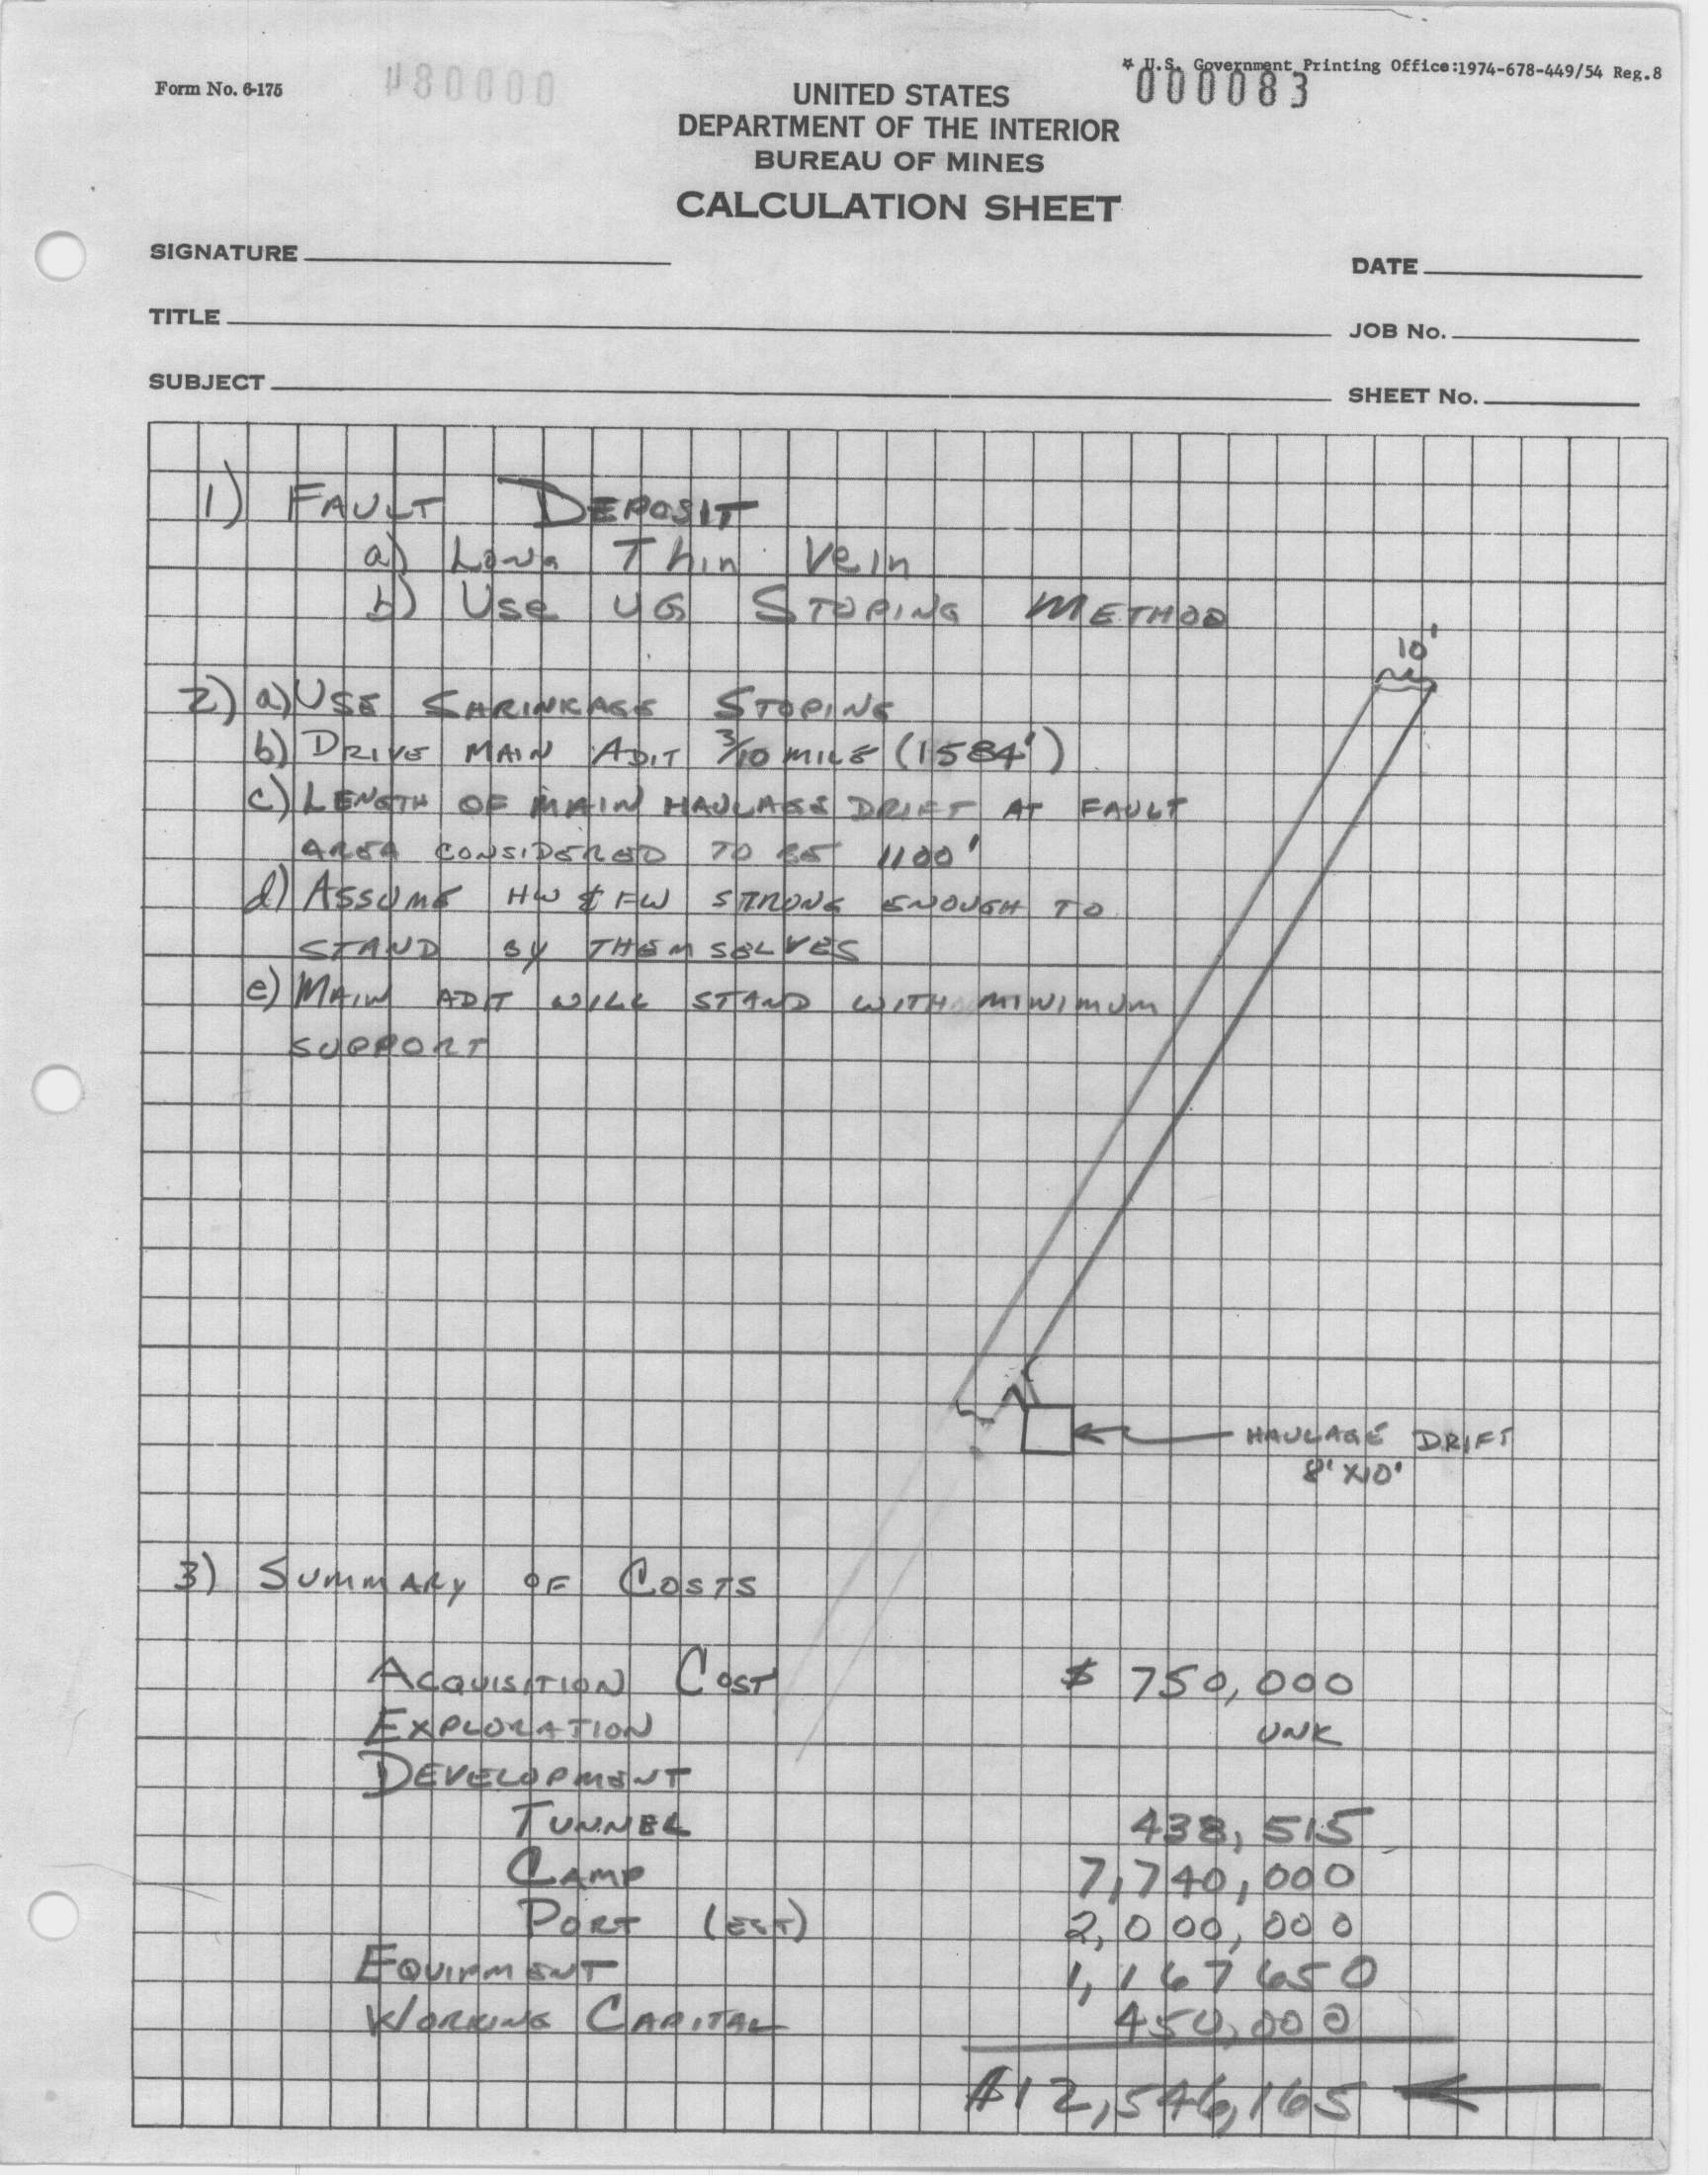 Form No. 6-175
480000
☆ U.S. Government Printing Office:1974-678-449/54 Reg.8
000083
UNITED STATES
DEPARTMENT OF THE INTERIOR
BUREAU OF MINES
CALCULATION SHEET
SIGNATURE
DATE
TITLE
JOB No.
SUBJECT
SHEET No.
1) FAULT DEPOSIT
a) Long Thin Vein
b) Use UG STOPING METHOD
10'
2) a) USE SHRINKAGE STOPING
b) DRIVE MAIN ADIT 3/10 MILE (1584')
c) LENGTH OF MAIN HAULAGE DRIFT AT FAULT
AREA CONSIDERED TO BE 1100'
d) ASSUME HW & FW STRONG ENOUGH TO
STAND BY THEMSELVES
e) MAIN ADIT WILL STAND WITH MINIMUM
SUPPORT
HAULAGE DRIFT
8' X10'
3) SUMMARY OF COSTS
ACQUISITION COST $ 750,000
EXPLORATION UNK
DEVELOPMENT
TUNNEL 438,515
CAMP 7,740,000
PORT (EST) 2,000,000
EQUIPMENT 1,167650
WORKING CAPITAL 450,000
$12,546,165